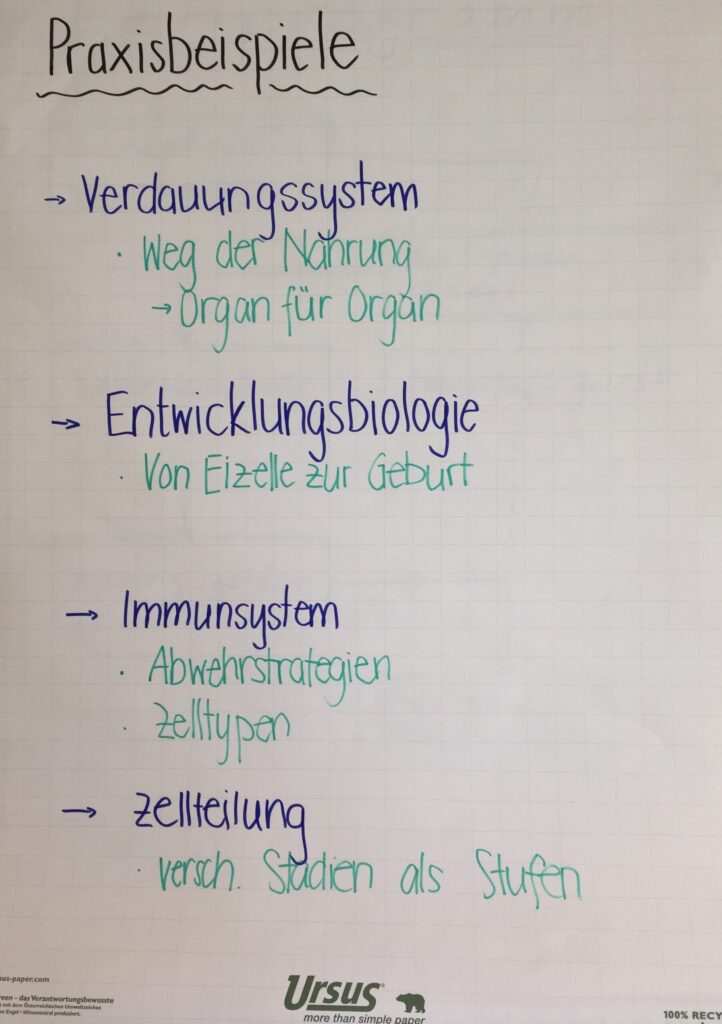 Praxisbeispiele
→ Verdauungssystem
· Weg der Nahrung
→ Organ für Organ
→ Entwicklungsbiologie
· Von Eizelle zur Geburt
→ Immunsystem
· Abwehrstrategien
· Zelltypen
→ Zellteilung
· versch. Stadien als Stufen
sus-paper.com
reen - das Verantwortungsbewusste
t mit dem Österreichischen Umweltzeichen
en Engel · klimaneutral produziert.
Ursus®
more than simple paper
100% RECY